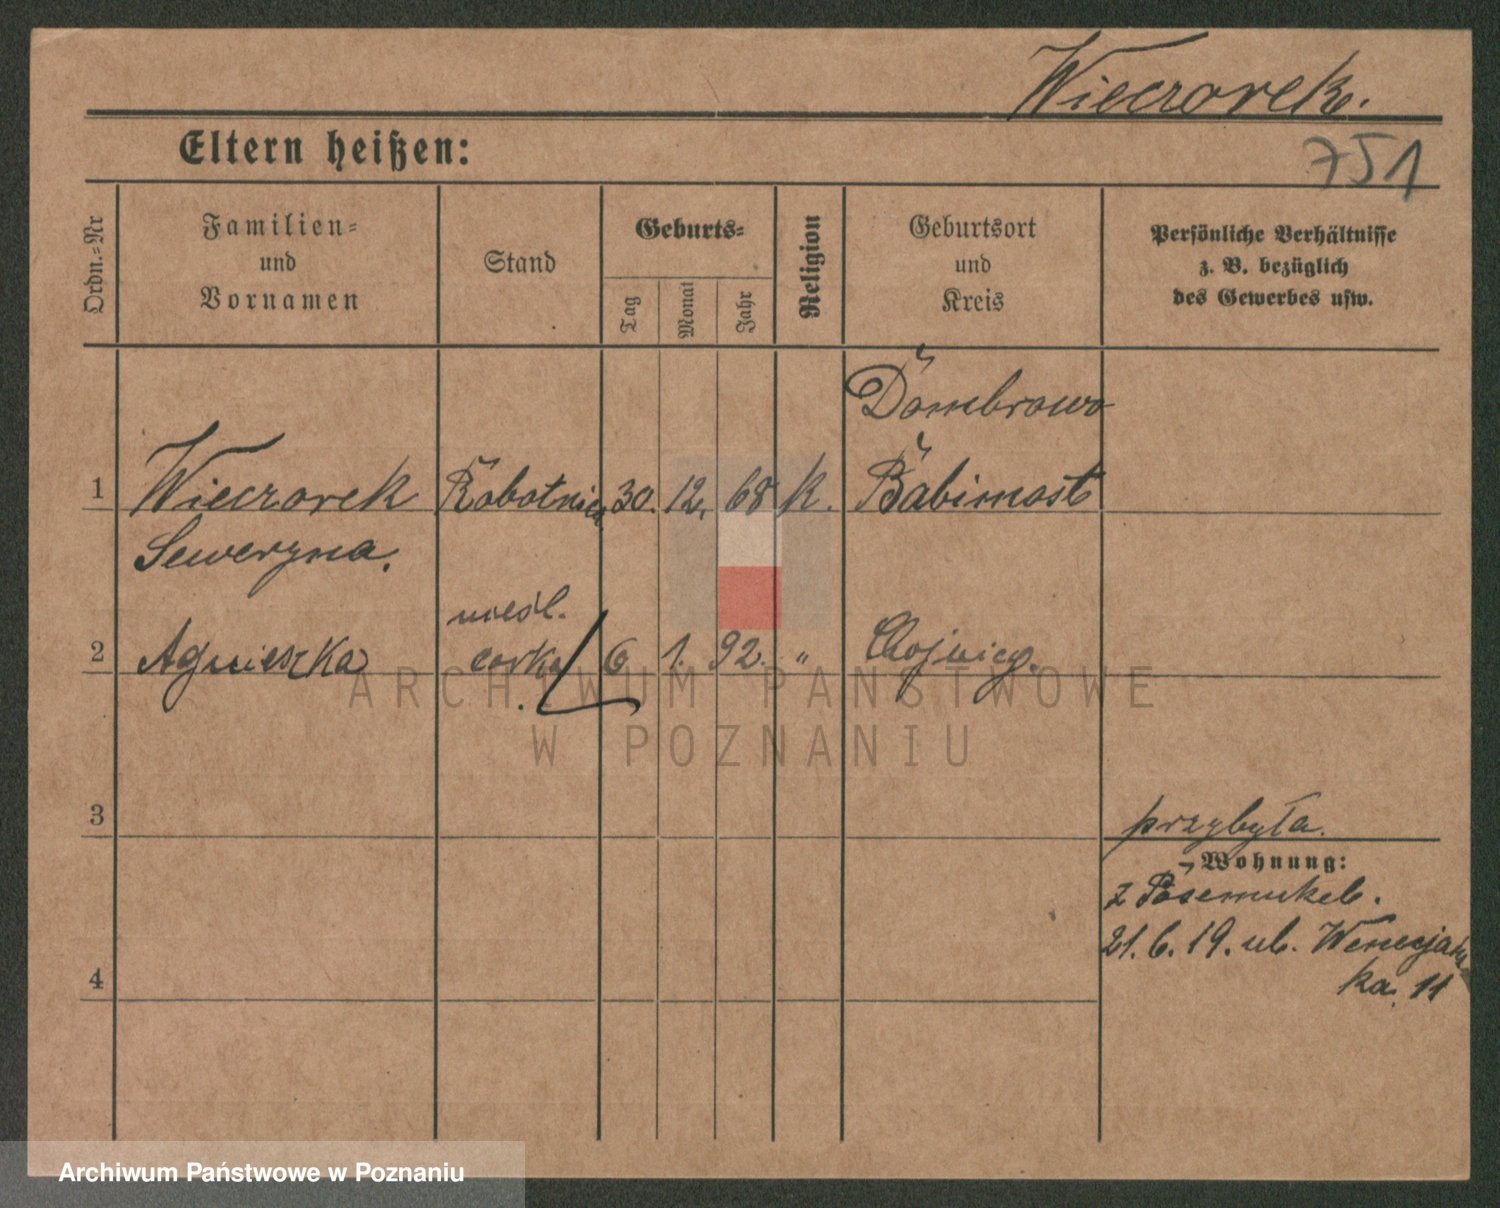 Wieczorek.
Eltern heißen:
751
Ordn.=Nr
Familien=
und
Vornamen
Stand
Geburts=
Tag
Monat
Jahr
Religion
Geburtsort
und
Kreis
Persönliche Verhältnisse
z. B. bezüglich
des Gewerbes usw.
Dombrowo
1 Wieczorek Robotnica 30. 12. 68 k. Babimost
Seweryna.
nieśl.
2 Agnieszka corka 6 1. 92. " Chojnicy.
ARCHIWUM PAŃSTWOWE
W POZNANIU
3
przybyła.
Wohnung:
z
21. 6. 19. ul. Wenecjańs
ka. 11
4
Archiwum Państwowe w Poznaniu